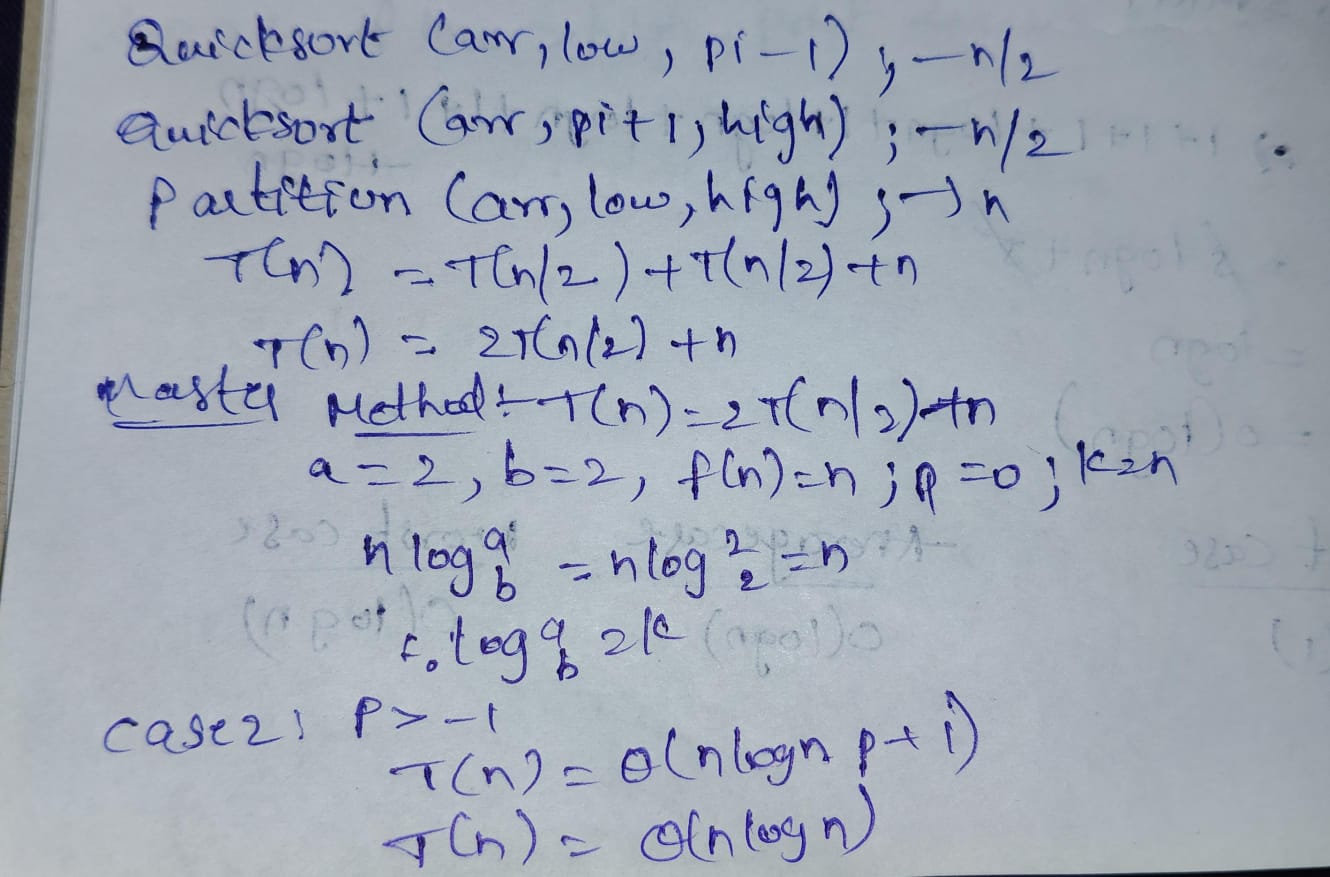 Quicksort (arr, low, pi-1); -n/2
Quicksort (arr, pi+1, high); -n/2
Partition (arr, low, high); → n
T(n) = T(n/2) + T(n/2) + n
T(n) = 2T(n/2) + n
Master Method:- T(n) = 2T(n/2) + n
a = 2, b = 2, f(n) = n ; p = 0 ; k = n
n log a b = n log 2 2 = n
∴ log a b = k
case 2: P > -1
T(n) = θ(n logn p+1)
T(n) = θ(n log n)